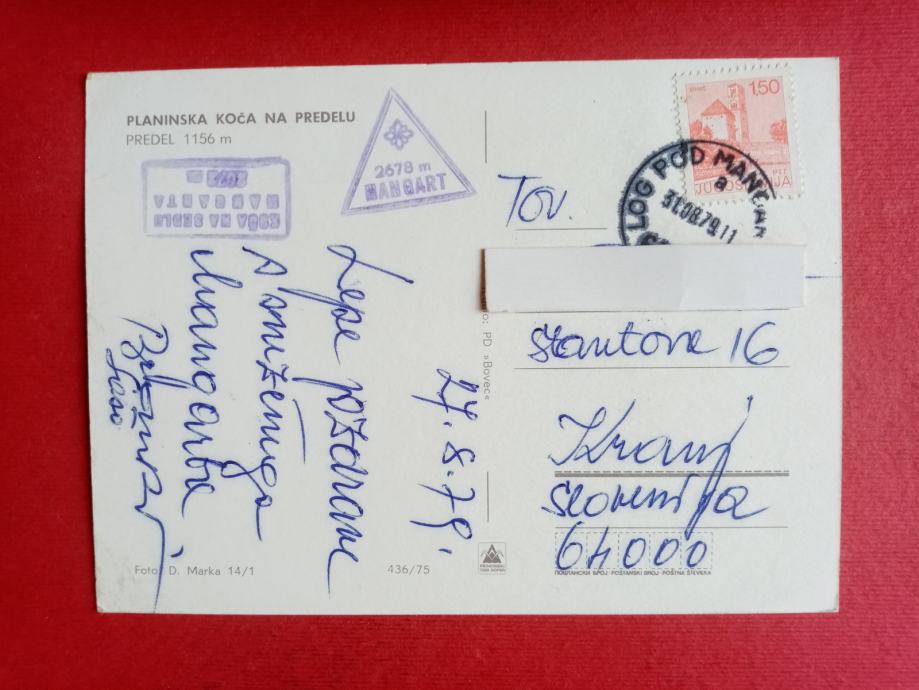 PLANINSKA KOČA NA PREDELU
PREDEL 1156 m
2678 m
MANGART
KOČA NA SEDLU
MANGARTA
Lepe pozdrave
s
Mangarta
27. 8. 79.
Foto: D. Marka 14/1
436/75
PD »Bovec«
1,50
JUGOSLAVIJA
LOG POD MANGAR
a
31.08.79.11
Tov.
Stantova 16
Kranj
Slovenija
64000
ПОШТАНСКИ БРОЈ · POŠTANSKI BROJ · POŠTNA ŠTEVILKA